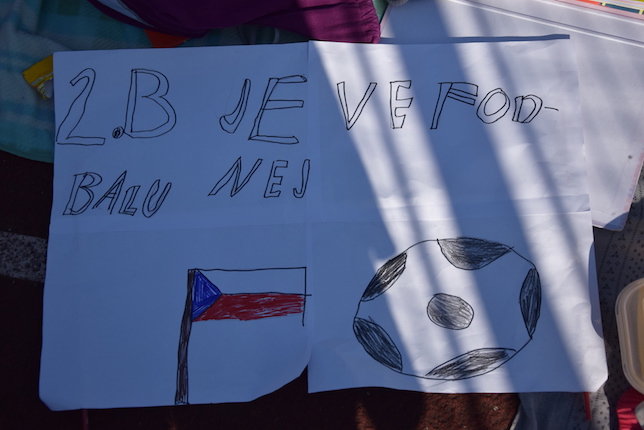 2.B JE VE FOD-
BALU NEJ